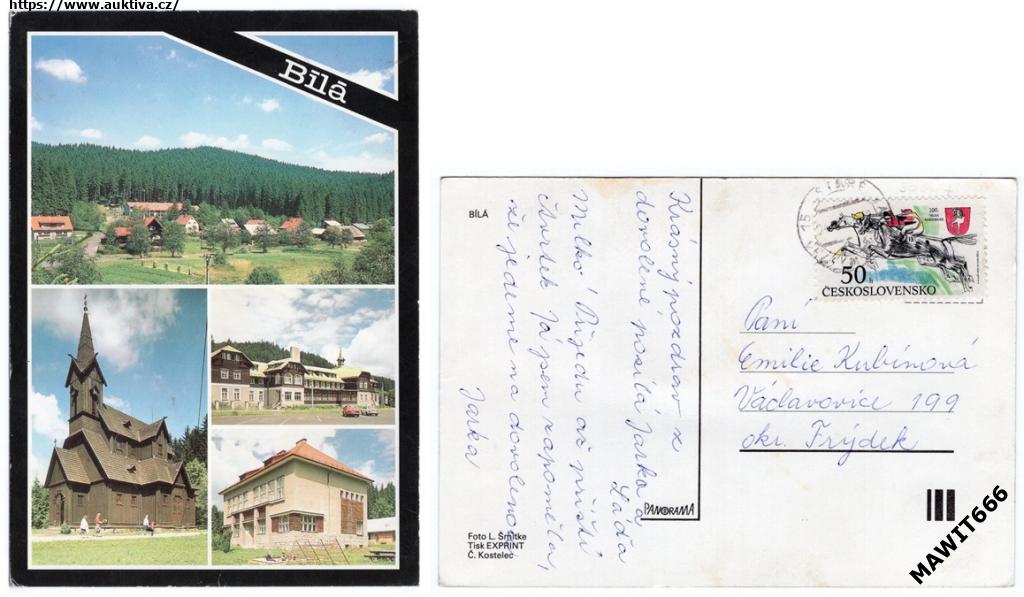 https://www.auktiva.cz/
Bílá
BÍLÁ
Krásný pozdrav z
dovolené posílá Jarka a
Laďa
Milko! Přijedu až příští
čtvrtek. Já jsem zapoměla,
že jedeme na dovolenou.
Jarka
Foto L. Šmitke
Tisk EXPRINT
Č. Kostelec
PANORAMA
50 h
ČESKOSLOVENSKO
Paní
Emilie Kubínová
Václavovice 199
okr. Frýdek
MAWIT666